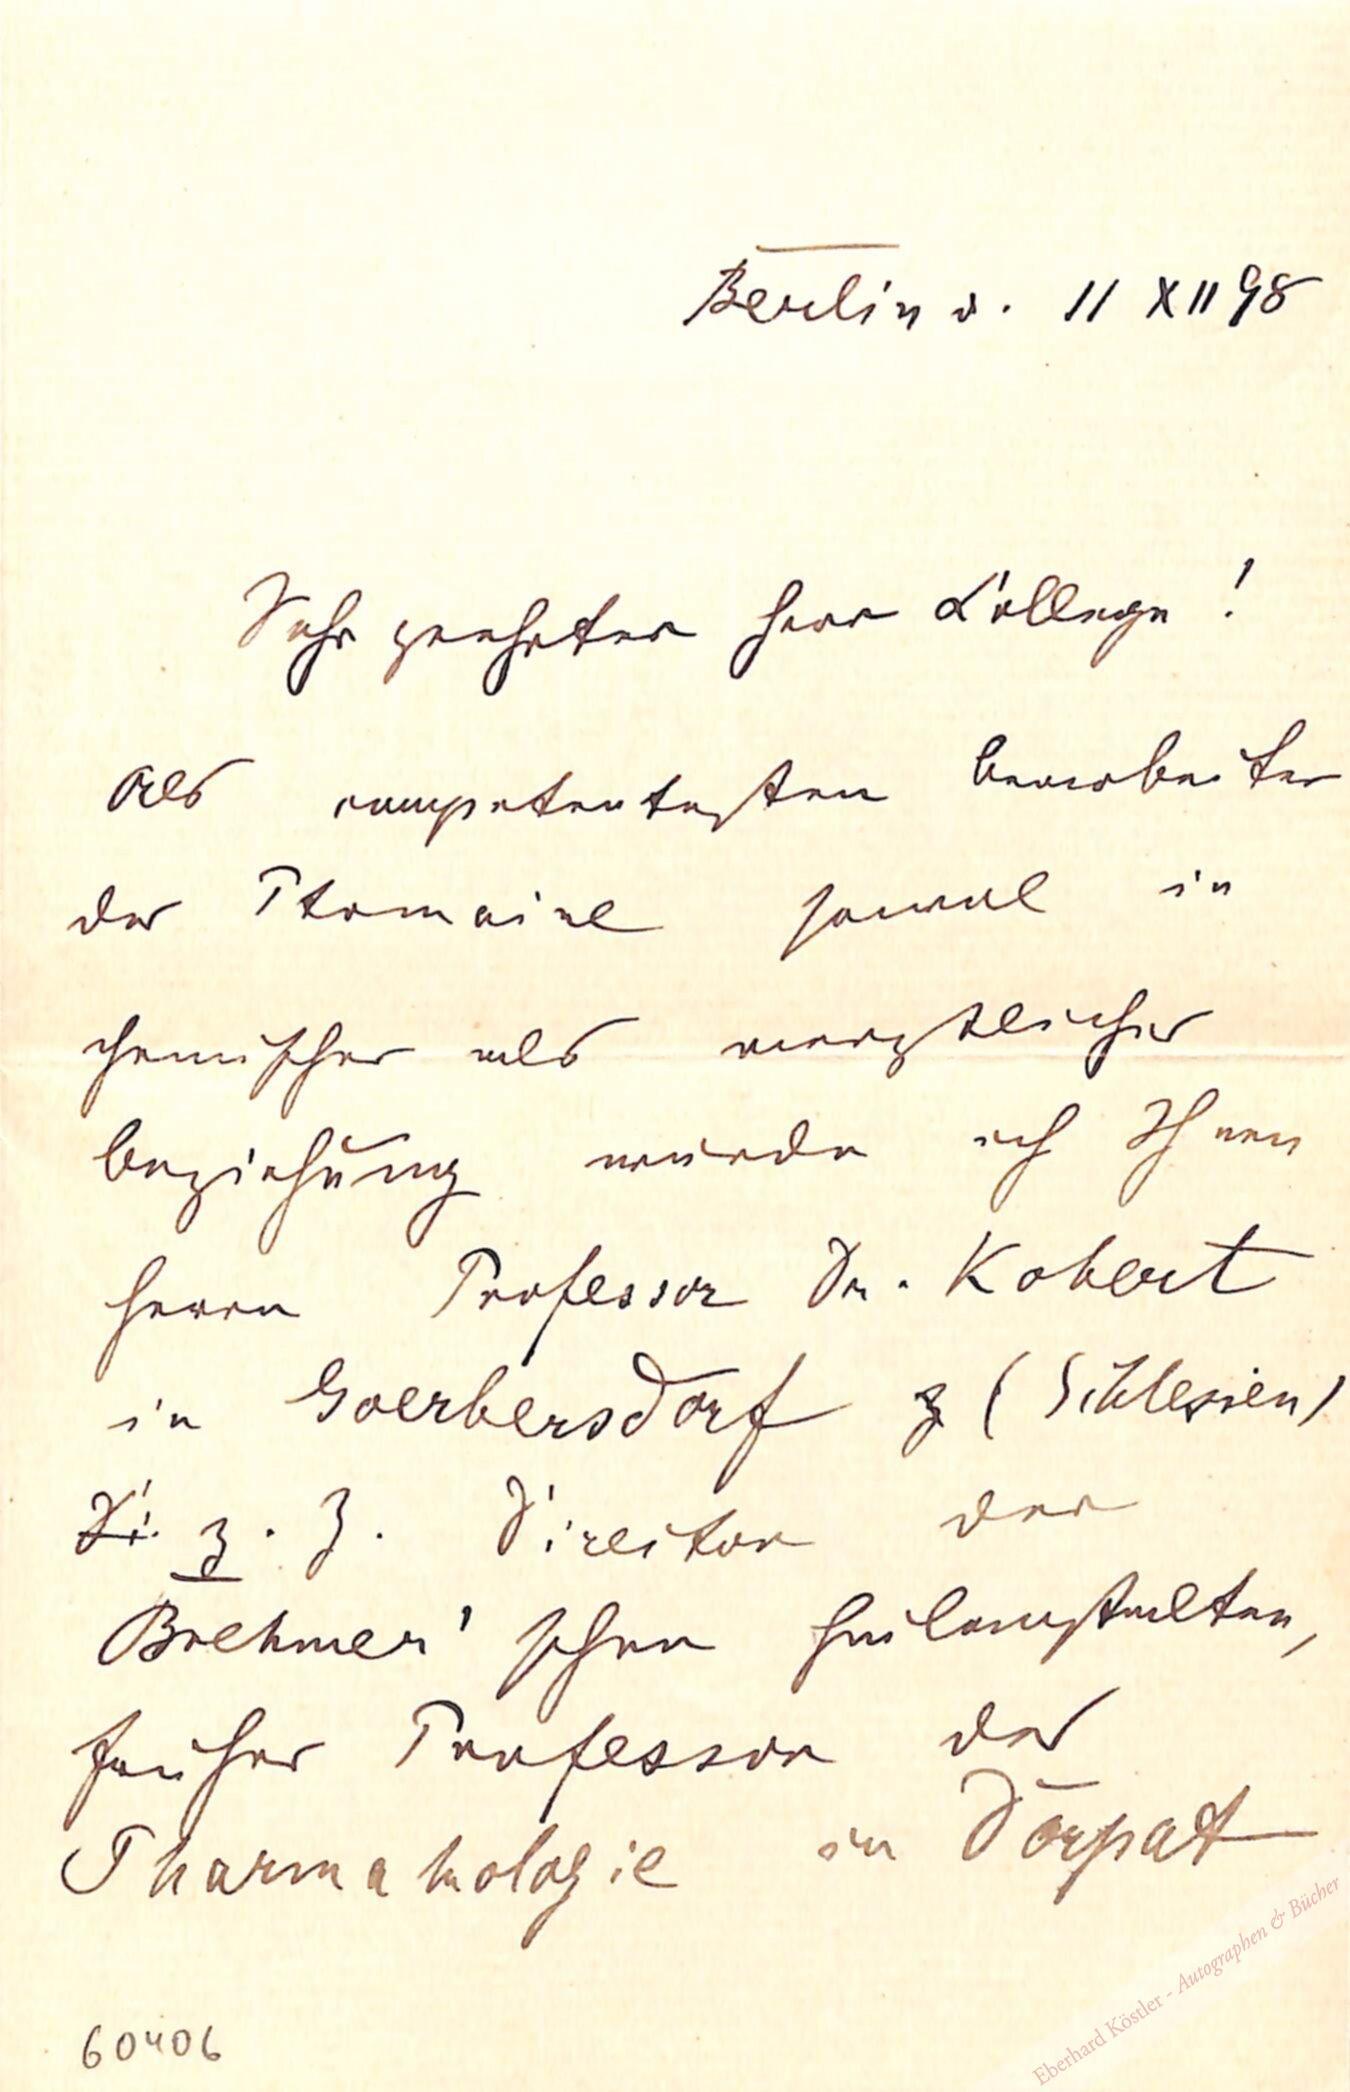 Berlin d. 11 XII 98
Sehr geehrter Herr College!
Als competentesten Bearbeiter
der Ptomaine sowol in
chemischer als aerztlicher
Beziehung würde ich Ihnen
Herrn Professor Dr. Kobert
in Goerbersdorf (Schlesien)
z. Z. Director der
Brehmer'schen Heilanstalten,
früher Professor der
Pharmakologie in Dorpat
60406
Eberhard Köstler - Autographen & Bücher